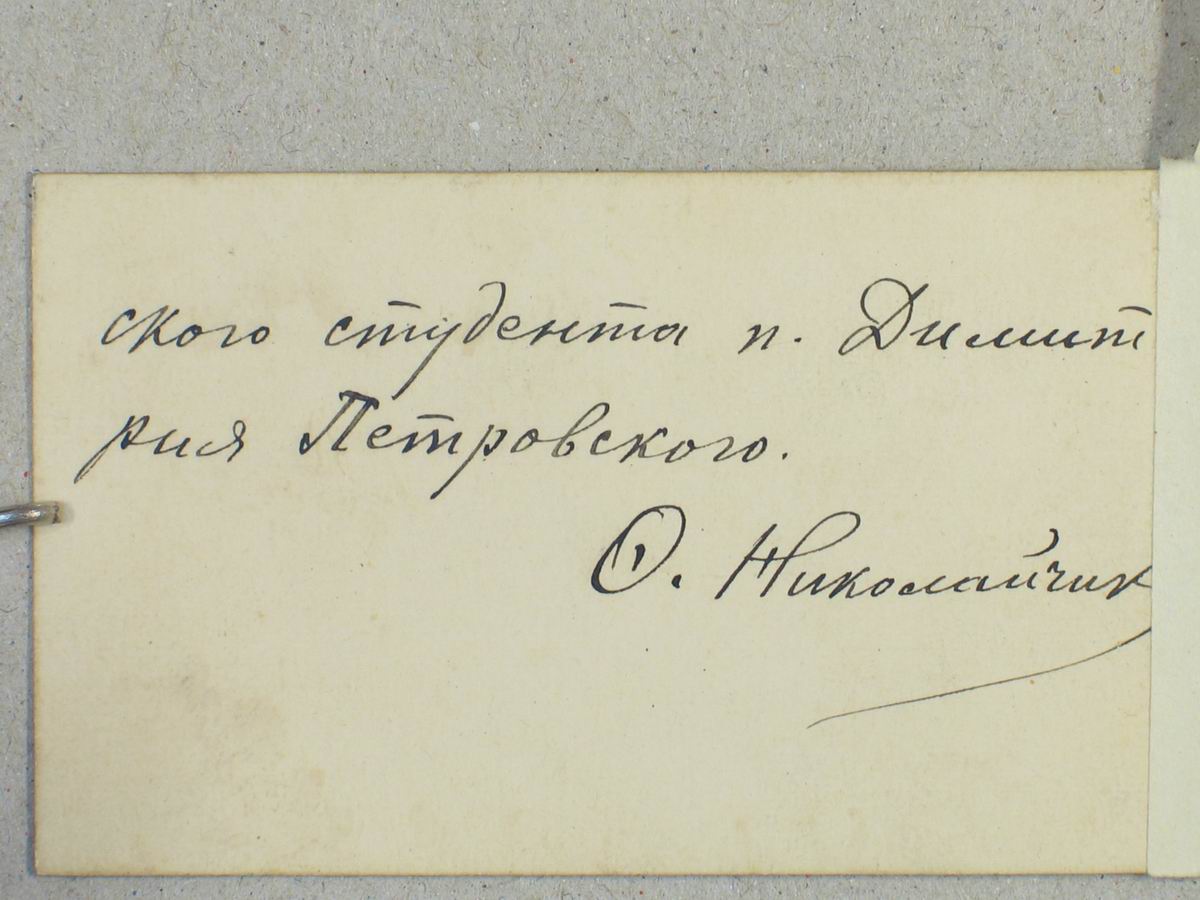 ского студента п. Димит
рия Петровского.
О. Николайчик